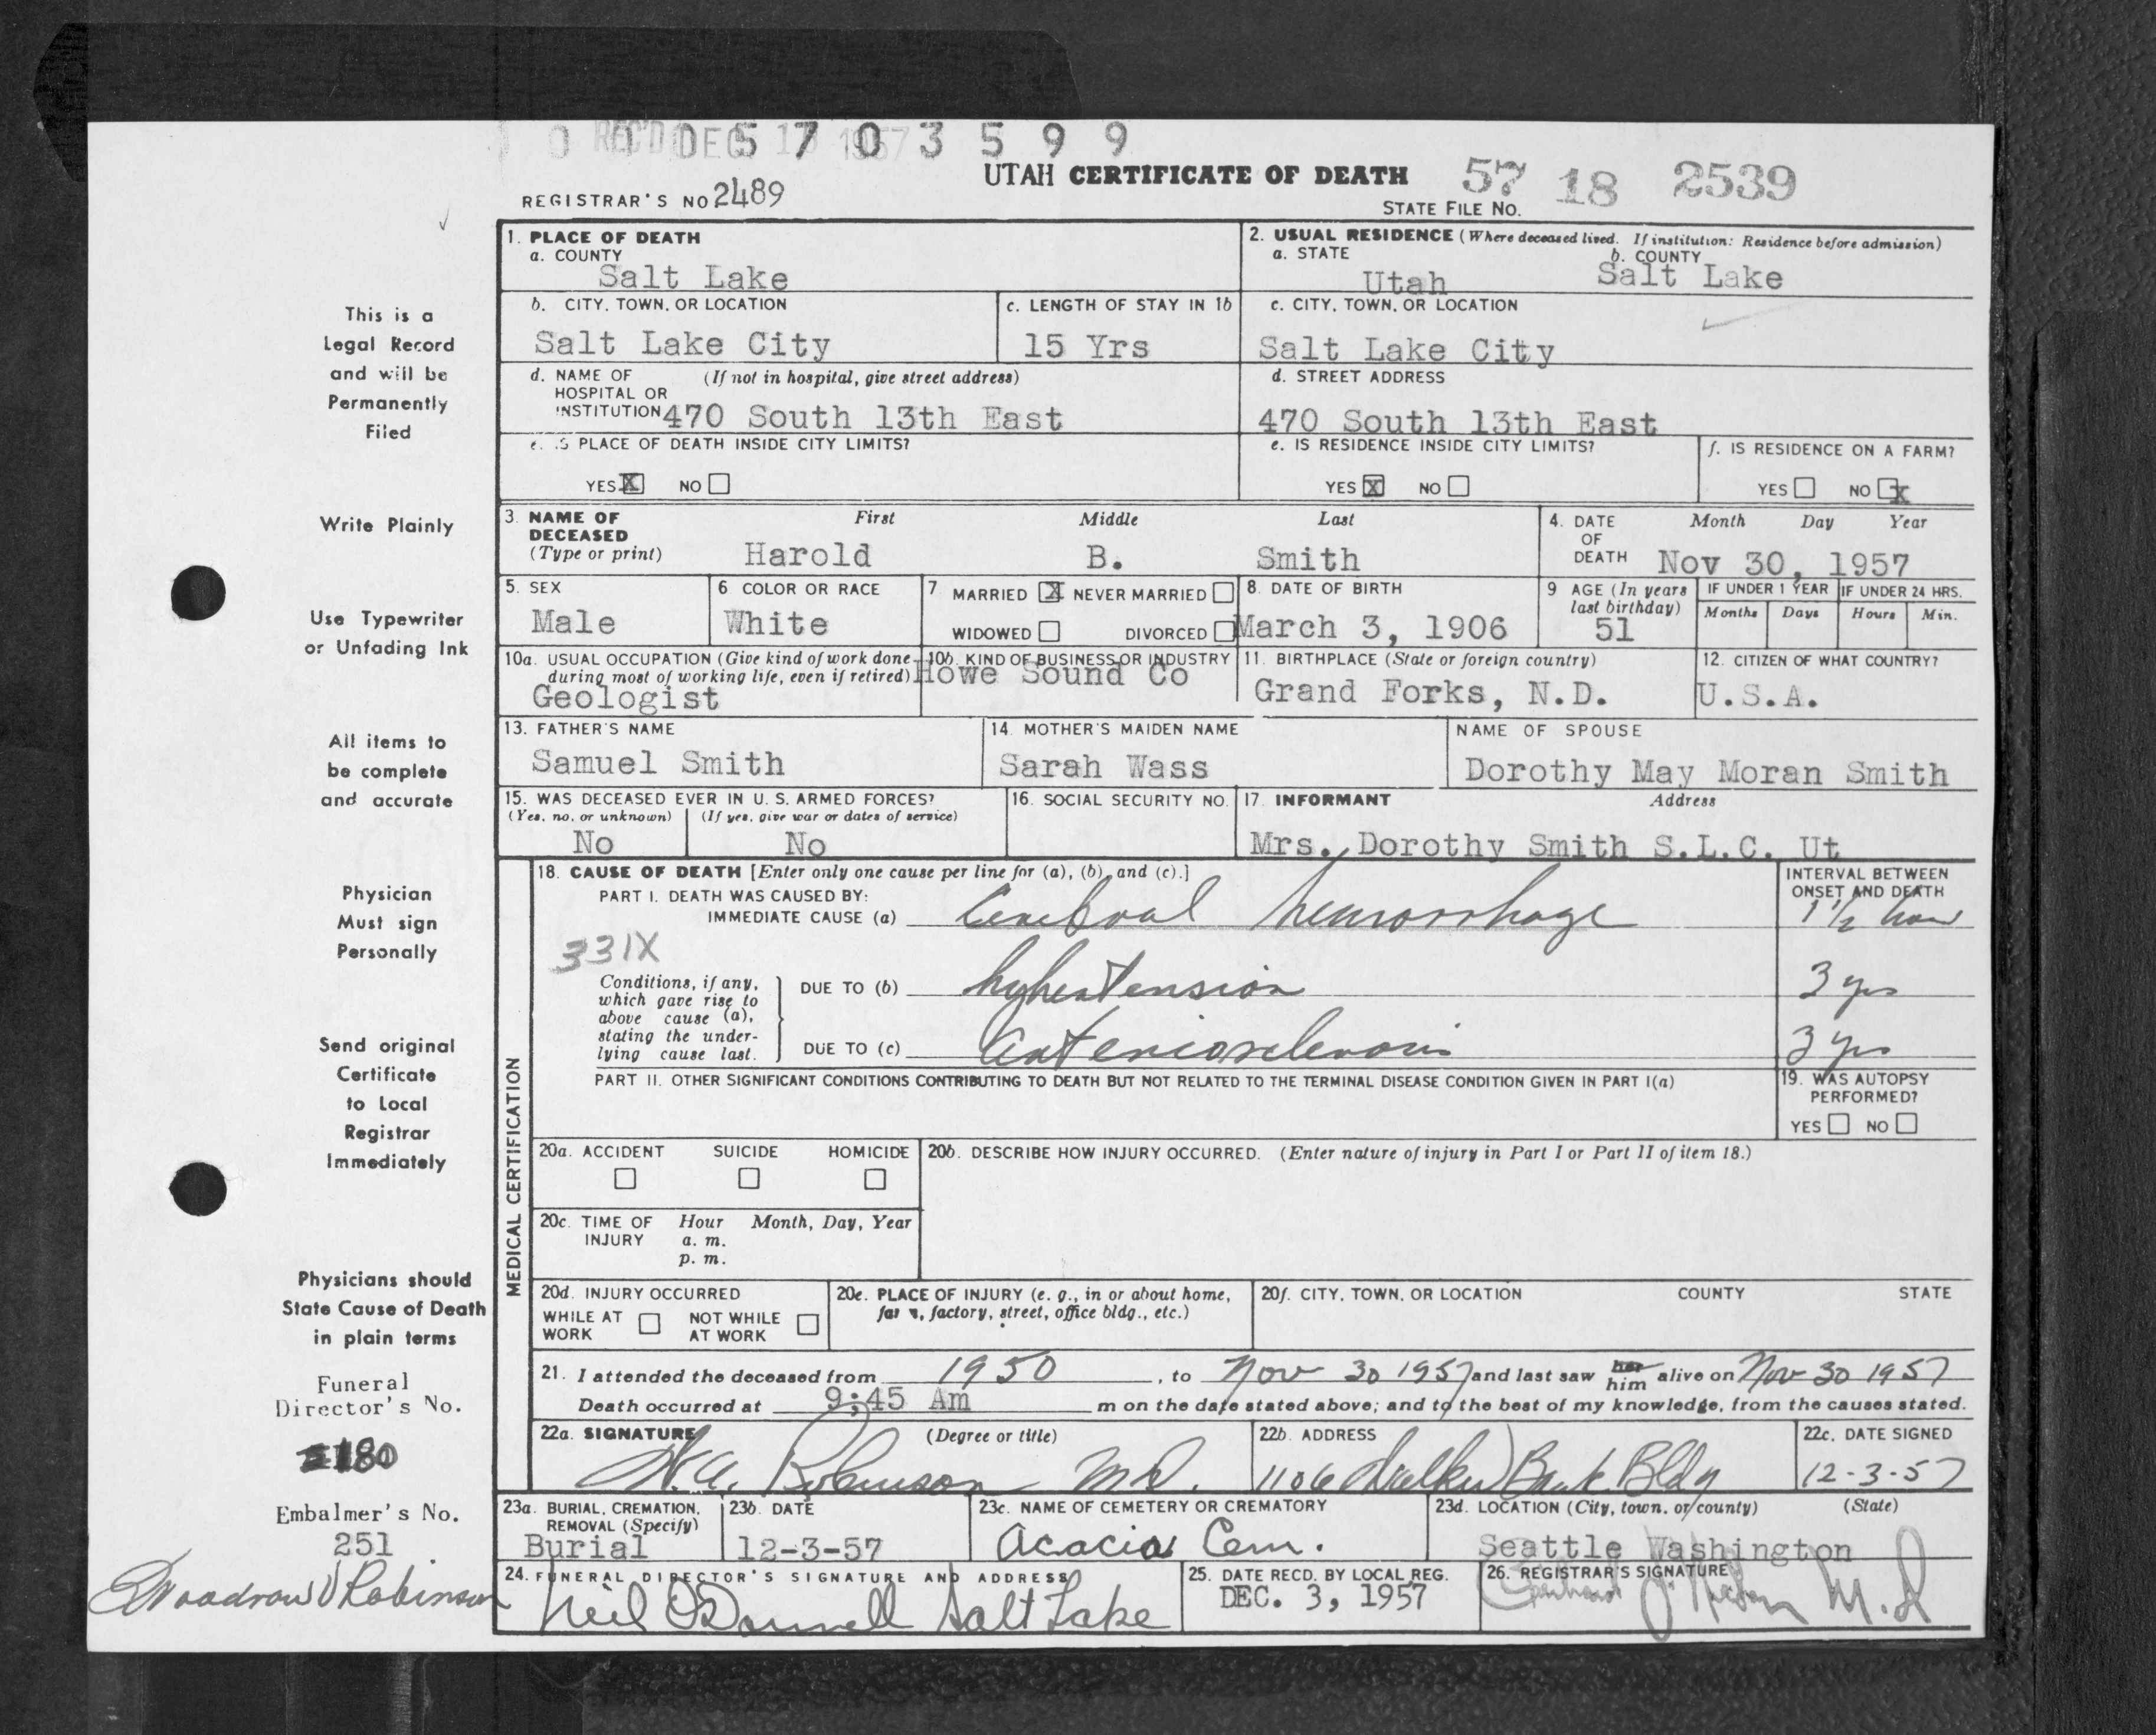 0 0 5 7 0 3 5 9 9
REC'D DEC 1957
UTAH CERTIFICATE OF DEATH 57 18 2539
REGISTRAR'S NO 2489
STATE FILE NO.
This is a
Legal Record
and will be
Permanently
Filed
Write Plainly
Use Typewriter
or Unfading Ink
All items to
be complete
and accurate
Physician
Must sign
Personally
Send original
Certificate
to Local
Registrar
Immediately
Physicians should
State Cause of Death
in plain terms
Funeral
Director's No.
180
Embalmer's No.
251
Woodrow V Robinson
1. PLACE OF DEATH
a. COUNTY
Salt Lake
2. USUAL RESIDENCE (Where deceased lived. If institution: Residence before admission)
a. STATE b. COUNTY
Utah Salt Lake
b. CITY, TOWN, OR LOCATION
Salt Lake City
c. LENGTH OF STAY IN 1b
15 Yrs
c. CITY, TOWN, OR LOCATION
Salt Lake City
d. NAME OF (If not in hospital, give street address)
HOSPITAL OR
INSTITUTION 470 South 13th East
d. STREET ADDRESS
470 South 13th East
e. IS PLACE OF DEATH INSIDE CITY LIMITS?
YES X NO
e. IS RESIDENCE INSIDE CITY LIMITS?
YES X NO
f. IS RESIDENCE ON A FARM?
YES NO X
3. NAME OF DECEASED (Type or print) First Middle Last
Harold B. Smith
4. DATE OF DEATH Month Day Year
Nov 30, 1957
5. SEX
Male
6 COLOR OR RACE
White
7 MARRIED X NEVER MARRIED
WIDOWED DIVORCED
8. DATE OF BIRTH
March 3, 1906
9 AGE (In years last birthday)
51
IF UNDER 1 YEAR IF UNDER 24 HRS.
Months Days Hours Min.
10a. USUAL OCCUPATION (Give kind of work done during most of working life, even if retired)
Geologist
10b. KIND OF BUSINESS OR INDUSTRY
Howe Sound Co
11. BIRTHPLACE (State or foreign country)
Grand Forks, N.D.
12. CITIZEN OF WHAT COUNTRY?
U.S.A.
13. FATHER'S NAME
Samuel Smith
14. MOTHER'S MAIDEN NAME
Sarah Wass
NAME OF SPOUSE
Dorothy May Moran Smith
15. WAS DECEASED EVER IN U. S. ARMED FORCES?
(Yes, no, or unknown) (If yes, give war or dates of service)
No No
16. SOCIAL SECURITY NO.
17. INFORMANT Address
Mrs. Dorothy Smith S.L.C. Ut
MEDICAL CERTIFICATION
18. CAUSE OF DEATH [Enter only one cause per line for (a), (b), and (c).]
PART I. DEATH WAS CAUSED BY:
IMMEDIATE CAUSE (a) Cerebral hemorrhage
INTERVAL BETWEEN
ONSET AND DEATH
1 1/2 hour
331X
Conditions, if any,
which gave rise to
above cause (a),
stating the under-
lying cause last.
DUE TO (b) hypertension 3 yrs
DUE TO (c) arteriosclerosis 3 yrs
PART II. OTHER SIGNIFICANT CONDITIONS CONTRIBUTING TO DEATH BUT NOT RELATED TO THE TERMINAL DISEASE CONDITION GIVEN IN PART I(a)
19. WAS AUTOPSY
PERFORMED?
YES NO
20a. ACCIDENT SUICIDE HOMICIDE
20b. DESCRIBE HOW INJURY OCCURRED. (Enter nature of injury in Part I or Part II of item 18.)
20c. TIME OF INJURY Hour Month, Day, Year
a. m.
p. m.
20d. INJURY OCCURRED
WHILE AT WORK NOT WHILE AT WORK
20e. PLACE OF INJURY (e. g., in or about home,
farm, factory, street, office bldg., etc.)
20f. CITY, TOWN, OR LOCATION COUNTY STATE
21. I attended the deceased from 1950, to Nov 30 1957 and last saw her him alive on Nov 30 1957
Death occurred at 9:45 Am m on the date stated above; and to the best of my knowledge, from the causes stated.
22a. SIGNATURE (Degree or title)
W.A. Robinson M.D.
22b. ADDRESS
1106 Walker Bank Bldg
22c. DATE SIGNED
12-3-57
23a. BURIAL, CREMATION,
REMOVAL (Specify)
Burial
23b. DATE
12-3-57
23c. NAME OF CEMETERY OR CREMATORY
Acacia Cem.
23d. LOCATION (City, town, or county) (State)
Seattle Washington
24. FUNERAL DIRECTOR'S SIGNATURE AND ADDRESS
Neil O'Donnell Salt Lake
25. DATE RECD. BY LOCAL REG.
DEC. 3, 1957
26. REGISTRAR'S SIGNATURE
M.D